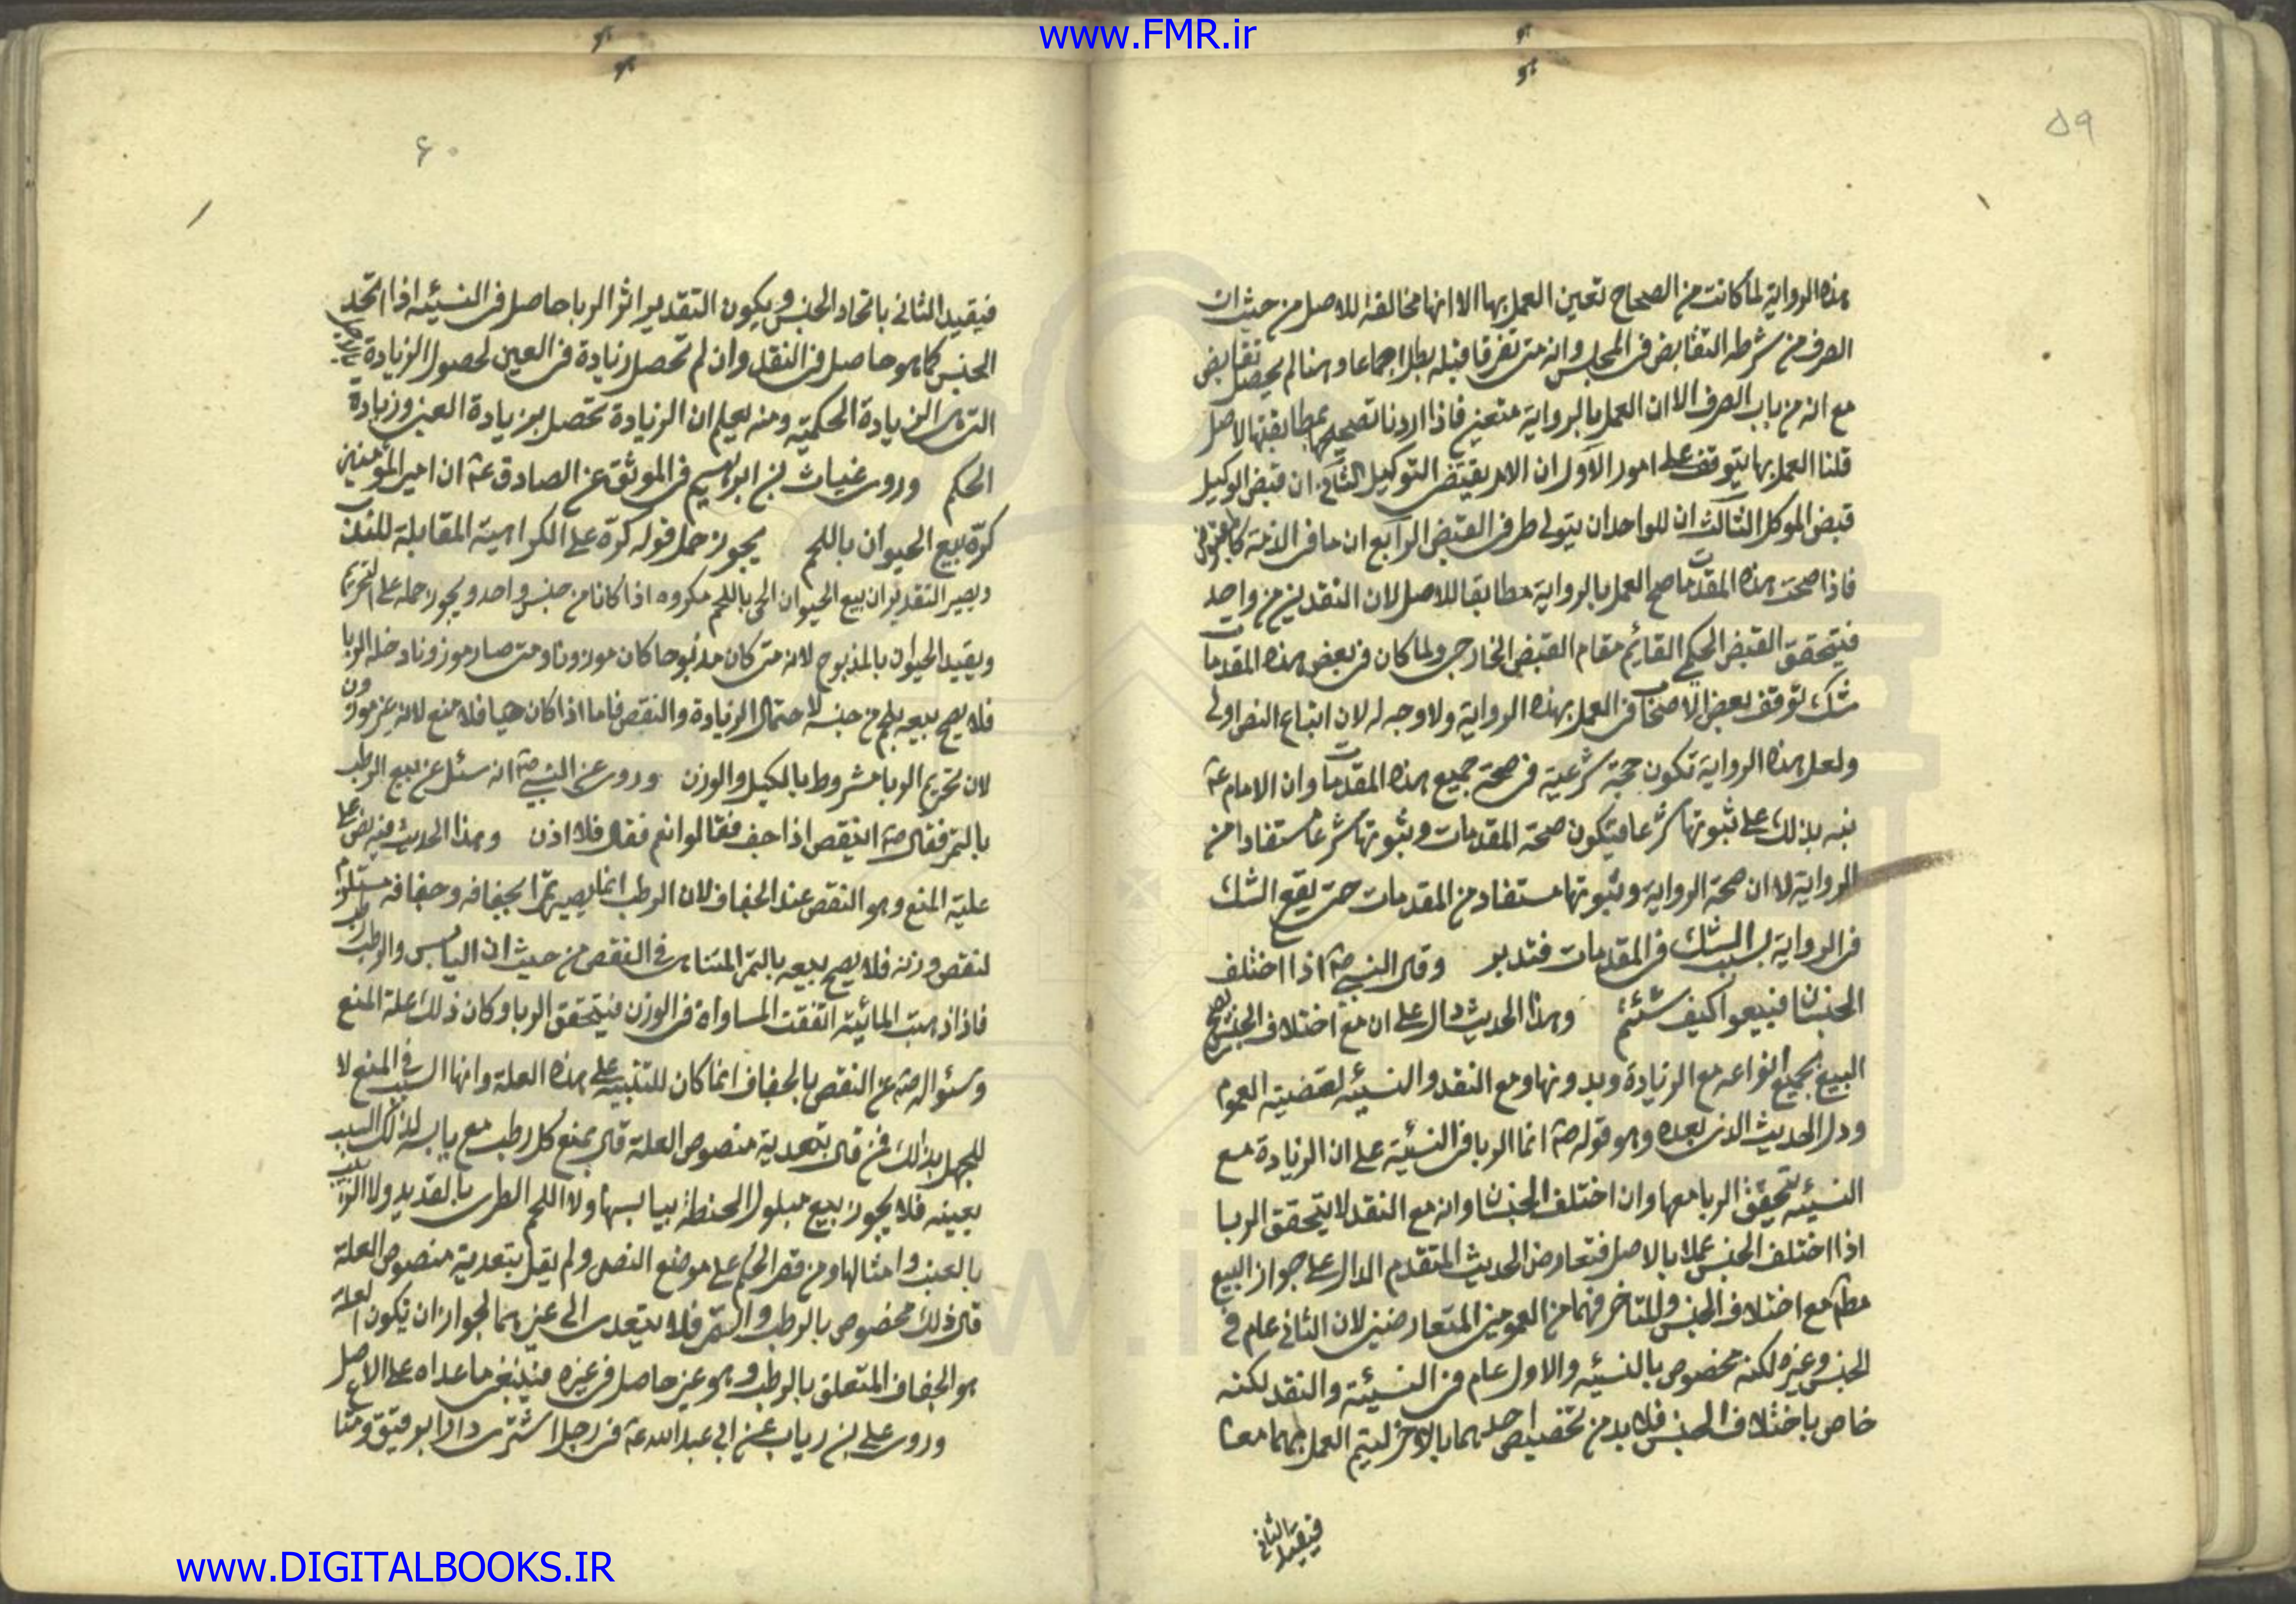 www.FMR.ir
۵۹
هذه الرواية لما كانت من الصحاح تعين العمل بها الا انها مخالفة للاصل من حيث ان
الصرف من شرطه التقابض فى المجلس وانه متى تفرقا قبله بطل اجماعا وهنا لم يحصل تقابض
مع انه من باب الصرف الا ان العمل بالرواية متعين فاذا اردنا تصحيحها بمطابقتها الاصل
قلنا العمل بها يتوقف على امور الاول ان الامر يقتضى التوكيل الثانى ان قبض الوكيل
قبض الموكل الثالث ان للواحد ان يتولى طرفى القبض الرابع ان ما فى الذمة كالمقبوض
فاذا صحت هذه المقدمات صح العمل بالرواية مطابقا للاصل لان النقدين من واحد
فيتحقق القبض الحكمى القائم مقام القبض الخارجى ولما كان فى بعض هذه المقدمات
شك توقف بعض الاصحاب فى العمل بهذه الرواية ولا وجه له لان اتباع النص اولى
ولعل هذه الرواية تكون حجة شرعية فى صحة جميع هذه المقدمات وان الامام ع
نبه بذلك على ثبوتها شرعا فيكون صحة المقدمات وثبوتها شرعا مستفادا من
الرواية لا ان صحة الرواية وثبوتها مستفاد من المقدمات حتى يقع الشك
فى الرواية بسبب الشك فى المقدمات فتدبر وقال النبى ص اذا اختلف
الجنسان فبيعوا كيف شئتم وهذا الحديث دال على ان مع اختلاف الجنس يصح
البيع بجميع انواعه مع الزيادة وبدونها ومع النقد والنسيئه لقضيته العموم
ودل الحديث الذى بعده وهو قوله ص انما الربا فى النسيئة على ان الزيادة مع
النسيئه يتحقق الربا معها وان اختلف الجنسان وانه مع النقد لا يتحقق الربا
اذا اختلف الجنس عملا بالاصل فتعارض الحديث المتقدم الدال على جواز البيع
مطلقا مع اختلاف الجنس والمتاخر فهما من العمومين المتعارضين لان الثانى عام فى
الجنس وغيره لكنه مخصوص بالنسيئه والاول عام فى النسيئة والنقد لكنه
خاص باختلاف الجنس فلا بد من تخصيص احدهما بالاخر ليتم العمل بهما معا
فيقيد الثانى
۶۰
فيقيد الثانى باتحاد الجنس ويكون التقدير اثر الربا حاصل فى النسيئه اذا اتحد
الجنس كما هو حاصل فى النقد وان لم تحصل زيادة فى العين لحصول الزيادة
التى هى الزيادة الحكمية ومنه يعلم ان الزيادة تحصل بزيادة العين وزيادة
الحكم وروى غياث بن ابرهيم فى الموثق عن الصادق ع ان امير المؤمنين
كره بيع الحيوان باللحم يجوز حمل قوله كره على الكراهية المقابلة للندب
ويصير التقدير ان بيع الحيوان الحى باللحم مكروه اذا كانا من جنس واحد ويجوز حمله على التحريم
ويقيد الحيوان بالمذبوح لانه متى كان مذبوحا كان موزونا ومتى صار موزونا دخله الربا
فلا يصح بيعه بلحم من جنسه لاحتمال الزيادة والنقص فاما اذا كان حيا فلا منع لانه غير موزون
لان تحريم الربا مشروط بالكيل والوزن وروى عن النبى ص انه سئل عن بيع الرطب
بالتمر فقال ص اينقص اذا جف فقالوا نعم فقال فلا اذن وهذا الحديث فيه نص على
علية المنع وهو النقص عند الجفاف لان الرطب انما يصير تمرا بجفافه وجفافه مستلزم
لنقص وزنه فلا يصح بيعه بالتمر المتناهى فى النقص من حيث ان اليابس والرطب
فاذا ذهبت المائية اتفقت المساواة فى الوزن فيتحقق الربا وكان ذلك علة المنع
وسئواله ص عن النقص بالجفاف انما كان للتنبيه على هذه العلة وانها السبب فى المنع لا
للجهل بذلك فمن قال بتعدية منصوص العلة قال بمنع كل رطب مع يابسه لذلك السبب
بعينه فلا يجوز بيع مبلول الحنطة بيابسها ولا اللحم الطرى بالقديد ولا الزبيب
بالعنب وامثالها ومن قصر الحكم على موضع النص ولم يقل بتعدية منصوص العلة
قال ذلك مخصوص بالرطب والتمر فلا يتعدى الى غيرهما لجواز ان يكون العلة
هو الجفاف المتعلق بالرطب وهو غير حاصل فى غيره فينبغى ما عداه على الاصل
وروى على بن رياب عن ابى عبد الله ع فى رجل اشترى دارا بو
www.DIGITALBOOKS.IR